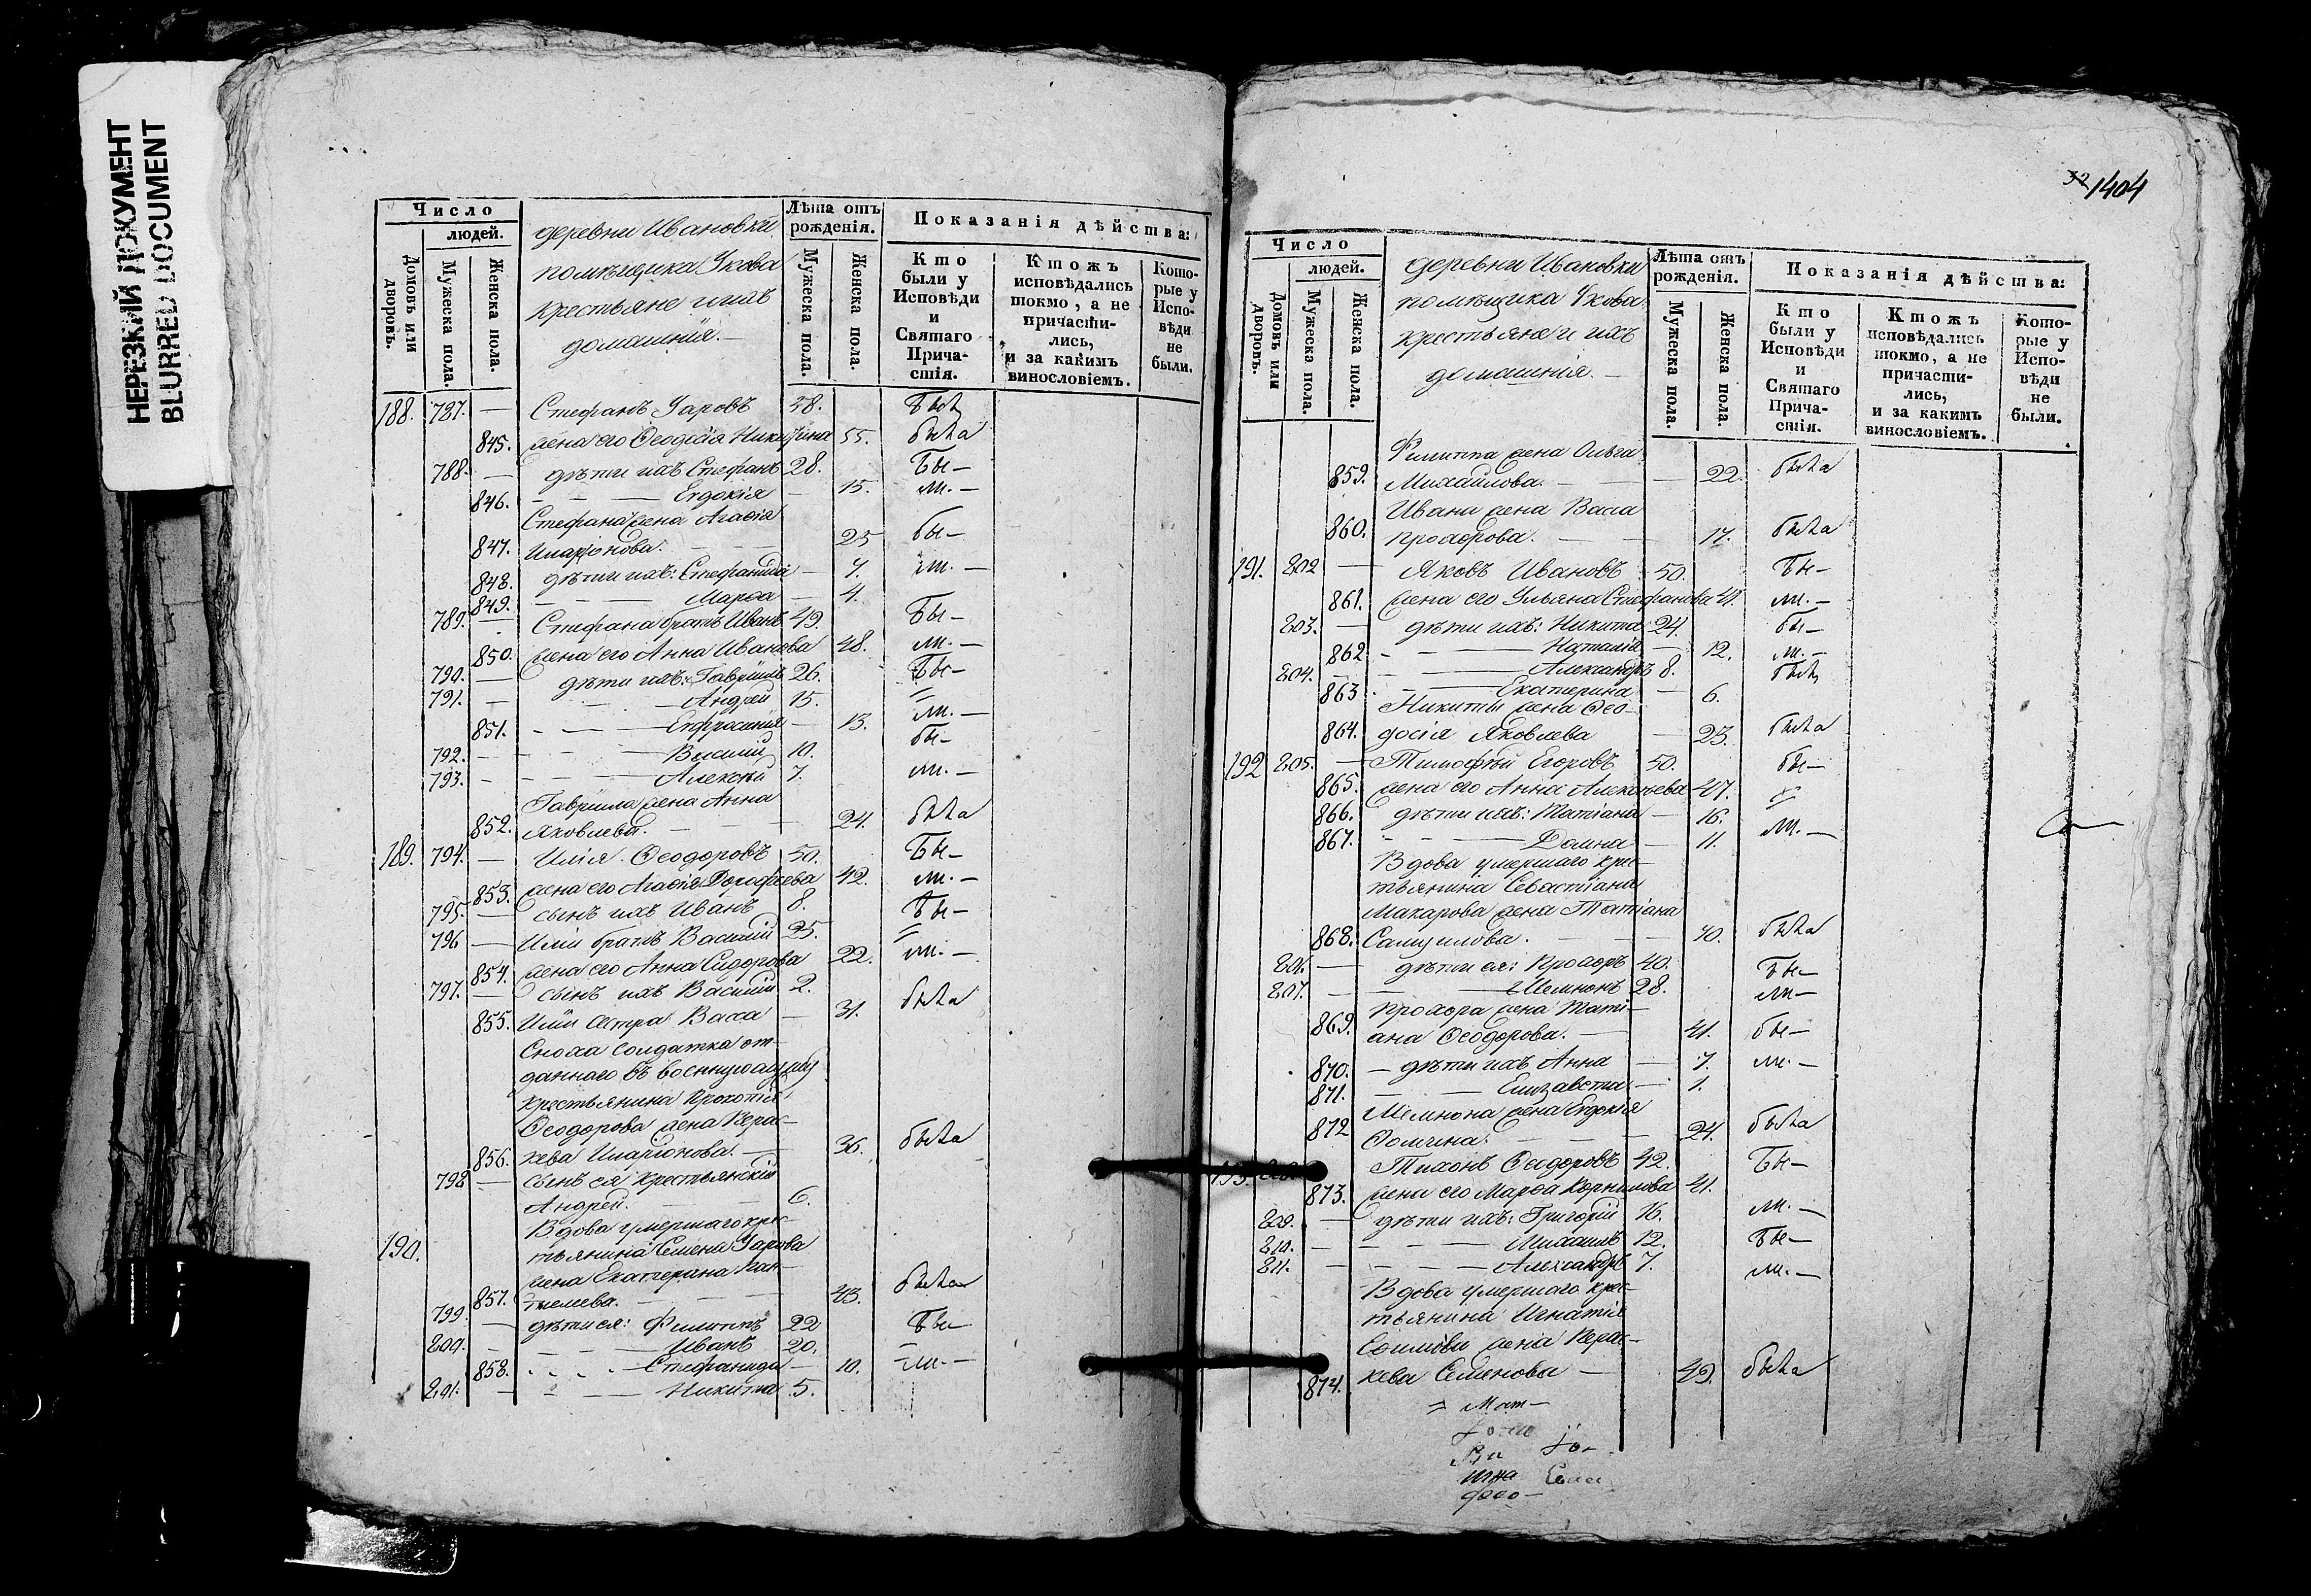 НЕРЕЗКИЙ ДОКУМЕНТ
BLURRED DOCUMENT
Число
людей.
Домовъ или дворовъ.
Мужеска пола.
Женска пола.
деревни Ивановки
помѣщика Укова
крестьяне и ихъ
домашнія.
Лѣта отъ рожденія.
Мужеска пола.
Женска пола.
Показанія дѣйства:
Кто были у Исповѣди и Святаго Причастія.
Ктожъ исповѣдались токмо, а не причастились, и за какимъ винословіемъ.
Которые у Исповѣди не были.
188. 787. — Стефанъ Уаровъ 58. былъ
845. жена его Ѳеодосія Никитина 55. была
788. — дѣти ихъ Стефанъ 28. бы—
846. — — — Евдокія — 15. ли. —
Стефана жена Агафія
847. Иларіонова. — — 25 бы—
848. дѣти ихъ: Стефанида — 7. ли. —
849. — — — Марѳа — 4.
789. — Стефана братъ Иванъ 49. бы—
850. жена его Анна Иванова 48. ли. —
790. — дѣти ихъ: Гавріилъ 26. бы—
791. — — — Андрей 15. =
851. — — — Евфросинія — 13. ли. —
792. — — — Василій 10. бы—
793. — — — Алексѣй 7. ли. —
Гавріила жена Анна
852. Яковлева. — — — 24. была
189. 794. — Илія Ѳеодоровъ 50. бы—
853. жена его Агафія Дорофѣева 42. ли. —
795. — сынъ ихъ Иванъ 8. бы—
796 — Иліи братъ Василій 25. =
854. жена его Анна Сидорова 22. ли. —
797. — сынъ ихъ Василій 2.
855. Иліи сестра Васса — 31. была
Сноха солдатка от-
даннаго въ военную службу
крестьянина Прокопія
Ѳеодорова жена Парас-
856. кева Иларіонова. — 36. была
798 — сынъ ея крестьянскій
Андрей. — 6.
190. Вдова умершаго крес-
тьянина Семена Уарова
жена Екатерина Пан-
857. телеева. — — — 43. была
799. — дѣти ея: Филиппъ 22 бы—
800. — — — Иванъ 20. =
858. — — — Стефанида — 10. ли. —
801. — — — Никита 5.
32 1404
Число
людей.
Домовъ или дворовъ.
Мужеска пола.
Женска пола.
деревни Ивановки
помѣщика Укова
крестьяне и ихъ
домашнія. —
Лѣта отъ рожденія.
Мужеска пола.
Женска пола.
Показанія дѣйства:
Кто были у Исповѣди и Святаго Причастія.
Ктожъ исповѣдались токмо, а не причастились, и за какимъ винословіемъ.
Которые у Исповѣди не были.
Филиппа жена Ольга
859. Михайлова. — — 22. была
Ивана жена Васса
860. Прохорова. — — 17. была
191. 802 — Яковъ Ивановъ 50. бы—
861. жена его Ульяна Стефанова 41. ли. —
803. — дѣти ихъ: Никита 24. бы—
862 — — — Наталія — 12. ли. —
804. — — — Александръ 8. былъ
863 — — Екатерина — 6.
Никиты жена Ѳео-
864. досія Яковлева — 23. была
192 805. — Тимофей Егоровъ 50. бы—
865. жена его Анна Алексѣева 47. =
866. дѣти ихъ: Татіана — 16.
867. — — — Домна — 11. ли. —
Вдова умершаго крес-
тьянина Севастіана
Макарова жена Татіана
868. Самуилова. — — — 70. была
806. — дѣти ея: Прохоръ 40. бы—
807. — — Мемнонъ 28. ли—
Прохора жена Тати-
869. ана Ѳеодорова. — 41. бы—
870. — дѣти ихъ Анна — 7. ли. —
871. — — Елизавета — 1.
Мемнона жена Евдокія
872 Ѳомина. — — — 24. была
193. 808. Тихонъ Ѳеодоровъ 42. бы—
873. жена его Марѳа Корнилова 41.
809. — дѣти ихъ: Григорій 16. ли. —
810. — — — Михаилъ 12. бы—
811. — — — Александръ 7. ли. —
Вдова умершаго крес-
тьянина Игнатія
Ефимова жена Парас-
874. кева Семенова — 49. была